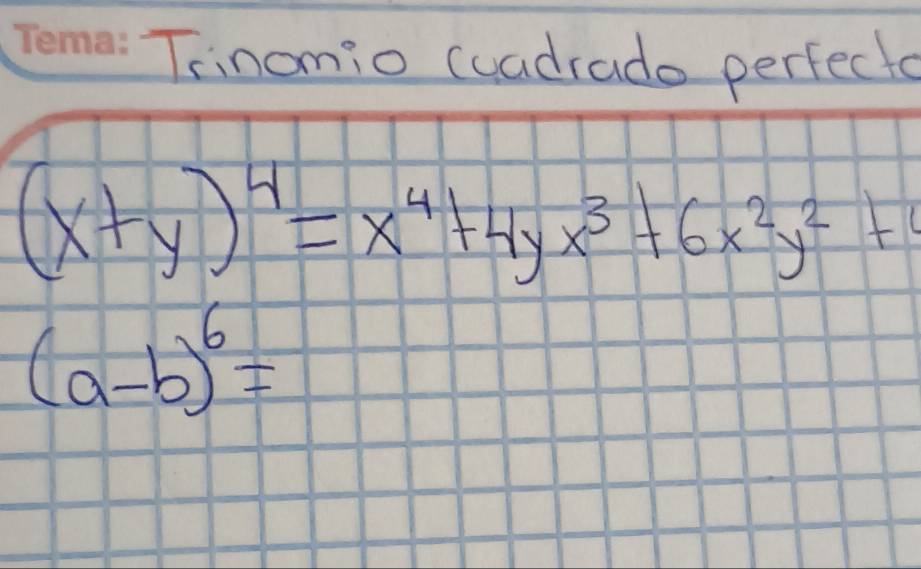 Tema: Trinomio cuadrado perfecto
(x+y)⁴ = x⁴+4yx³+6x²y² +
(a-b)⁶=